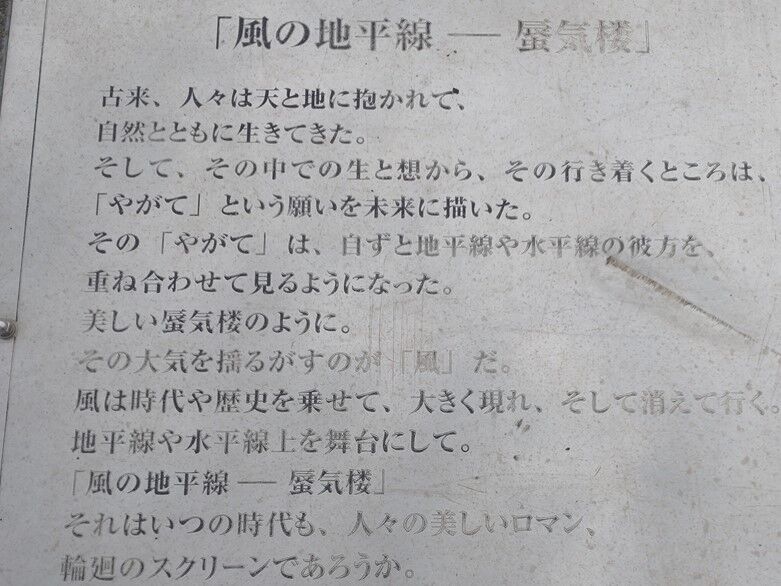 「風の地平線 ― 蜃気楼」
古来、人々は天と地に抱かれて、
自然とともに生きてきた。
そして、その中での生と想から、その行き着くところは、
「やがて」という願いを未来に描いた。
その「やがて」は、自ずと地平線や水平線の彼方を、
重ね合わせて見るようになった。
美しい蜃気楼のように。
その大気を揺るがすのが「風」だ。
風は時代や歴史を乗せて、大きく現れ、そして消えて行く。
地平線や水平線上を舞台にして。
「風の地平線 ― 蜃気楼」
それはいつの時代も、人々の美しいロマン、
輪廻のスクリーンであろうか。